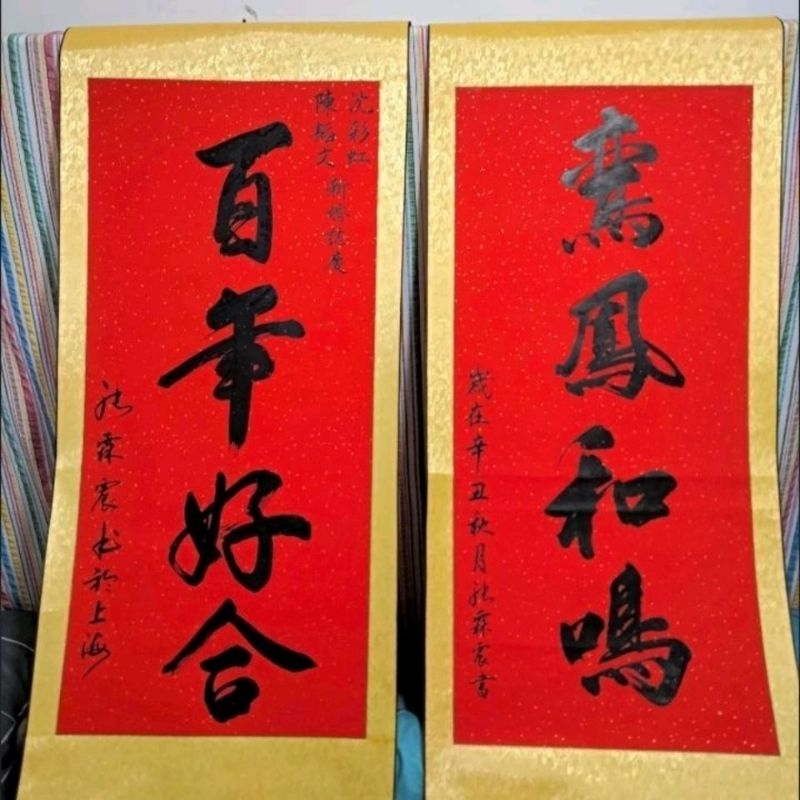 鸾鳳和鳴
歲在辛丑秋月 霖宸書
沈彩虹
陳 文 新婚誌慶
百年好合
霖宸書於上海